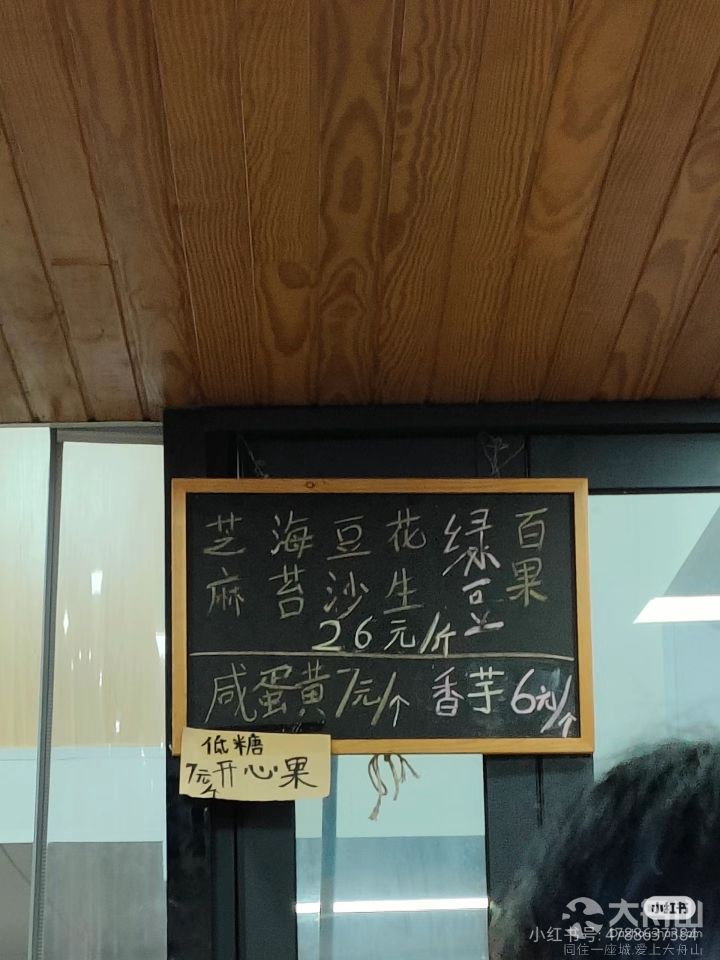 芝麻 海苔 豆沙 花生 绿豆 百果
26元/斤
咸蛋黄7元/个 香芋6元/个
低糖
7元/个开心果
大舟山
小红书
小红书号: 4788637384
同住一座城.爱上大舟山